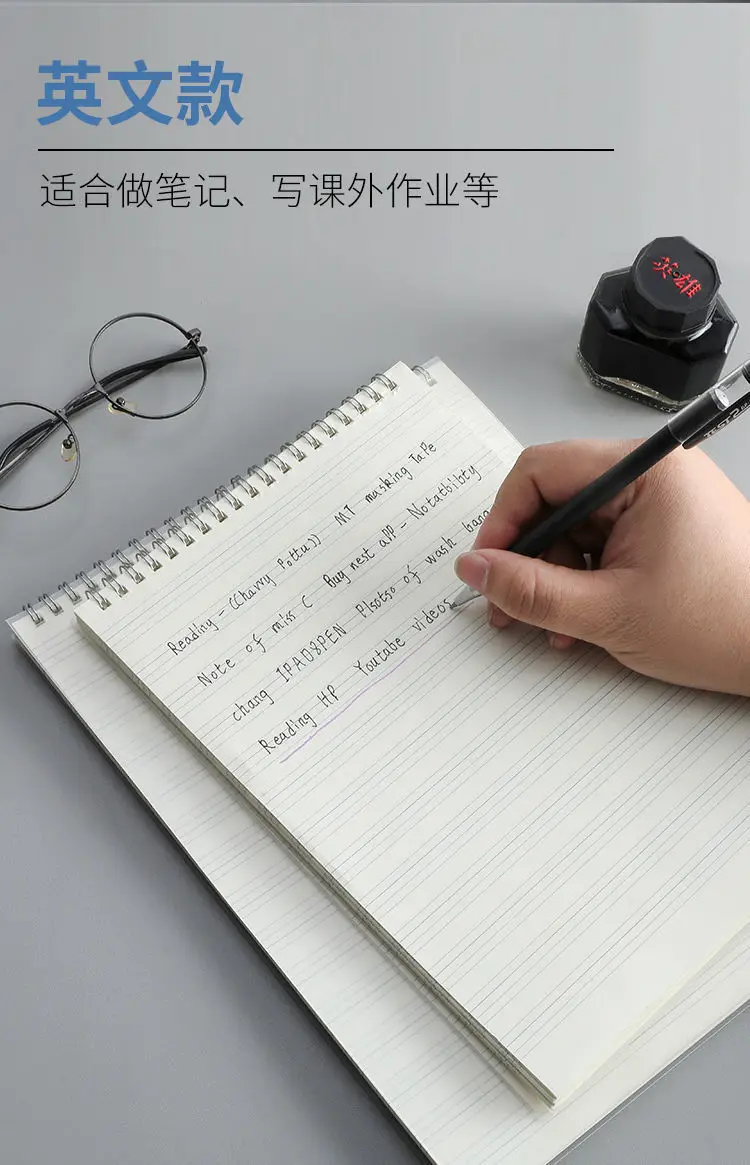 英文款
适合做笔记、写课外作业等
英雄
TEST 2
Reading - ((harry Pottu)) MT masking TaPe
Note of miss C Buy nest app - Notatbibty
chang IPAD8PEN Plsotso of wash bang
Reading HP Youtabe videos